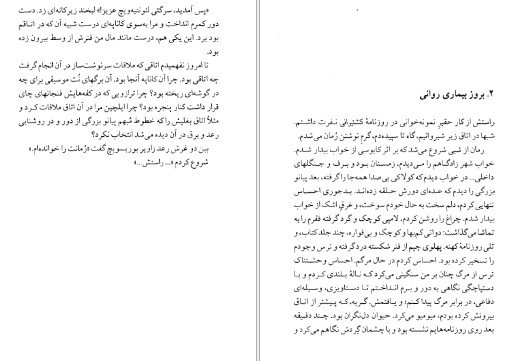 «پس آمدید، سرگئی لئونتیه‌ویچ عزیز!» لبخند زیرکانه‌ای زد. دست
دور کمرم انداخت و مرا به‌سوی کاناپه‌ای درست شبیه آن که در اتاقم
بود برد. این یکی هم، درست مانند مال من فنرش از وسط بیرون زده
بود.
تا امروز نفهمیدم اتاقی که ملاقات سرنوشت‌ساز در آن انجام گرفت
چه اتاقی بود. چرا آن کاناپه آنجا بود. آن برگهای نُت موسیقی برای چه
در گوشه‌ای ریخته بود؟ چرا ترازویی که در کفه‌هایش فنجانهای چای
قرار داشت کنار پنجره بود؟ چرا ایلچین مرا در آن اتاق ملاقات کرد و
مثلاً اتاق بغلیش را که خطوط مبهم پیانو بزرگی از دور و در روشنایی
رعد و برق در آن دیده می‌شد انتخاب نکرد؟
بین دو غرش رعد زاویر بوریسویچ گفت «رُمانت را خوانده‌ام.»
شروع کردم «... راستش...»
۲. بروز بیماری روانی
راستش از کار حقیرِ نمونه‌خوانی در روزنامهٔ کشتیرانی نفرت داشتم.
شبها در اتاق زیر شیروانیم، گاه تا سپیده‌دم، گرم نوشتن رُمان می‌شدم.
رمان از شبی شروع می‌شد که بر اثر کابوسی از خواب بیدار شدم.
خواب شهر زادگاهم را می‌دیدم، زمستان بود و برف و جنگهای
داخلی... در خواب دیدم که کولاکی بی‌صدا همه‌جا را گرفته، بعد پیانو
بزرگی را دیدم که عده‌ای دورش حلقه زده‌اند. بدجوری احساس
تنهایی کردم، دلم سخت به حال خودم سوخت، و غرق اشک از خواب
بیدار شدم. چراغ را روشن کردم، لامپی کوچک و گرد گرفته فقرم را به
تماشا می‌گذاشت: دواتی کم‌بها و کوچک و بی‌قواره، چند جلد کتاب، و
تلی روزنامهٔ کهنه. پهلوی چپم از فنر شکسته درد گرفته و ترس وجودم
را تسخیر کرده بود. احساس کردم در حال مرگم. احساس وحشتناک
ترس از مرگ چنان بر من سنگینی می‌کرد که نالهٔ بلندی کردم و با
دستپاچگی نگاهی به دور و برم انداختم تا دستاویزی، وسیله‌ای
دفاعی، در برابر مرگ پیدا کنم؛ و یافتمش. گربه، که پیشتر از اتاق
بیرونش کرده بودم، میومیو می‌کرد. حیوان دل‌نگران بود. چند دقیقه
بعد روی روزنامه‌هایم نشسته بود و با چشمان گِردش نگاهم می‌کرد و